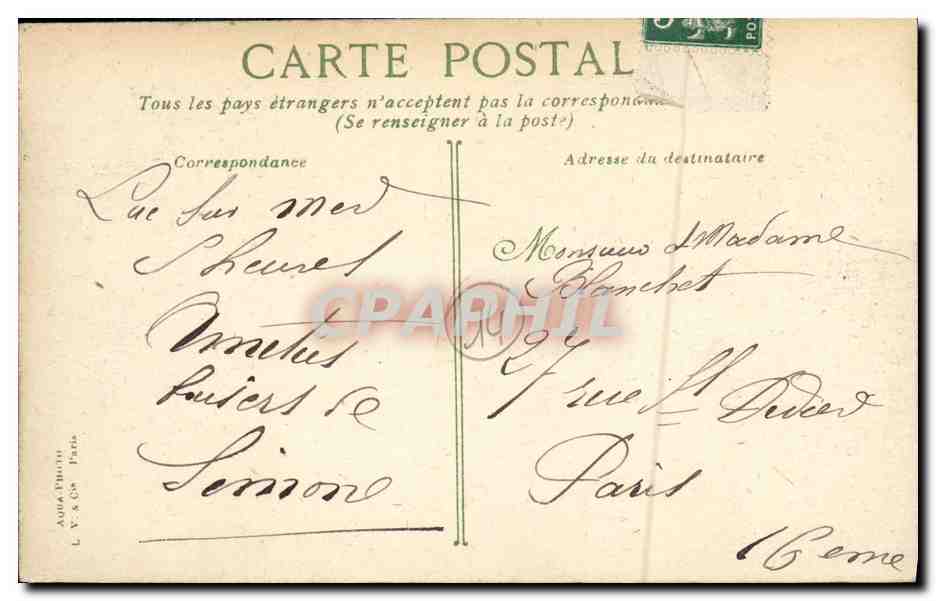 CARTE POSTAL
Tous les pays étrangers n'acceptent pas la correspondan
(Se renseigner à la poste)
Correspondance
Luc sur mer
5 heures
baisers de
Simone
Adresse du destinataire
Monsieur et Madame
Blanchet
27 rue St Didier
Paris
16 eme
14
CPAPHIL
AQUA-PHOTO
L. V. & Cie Paris
5
POS